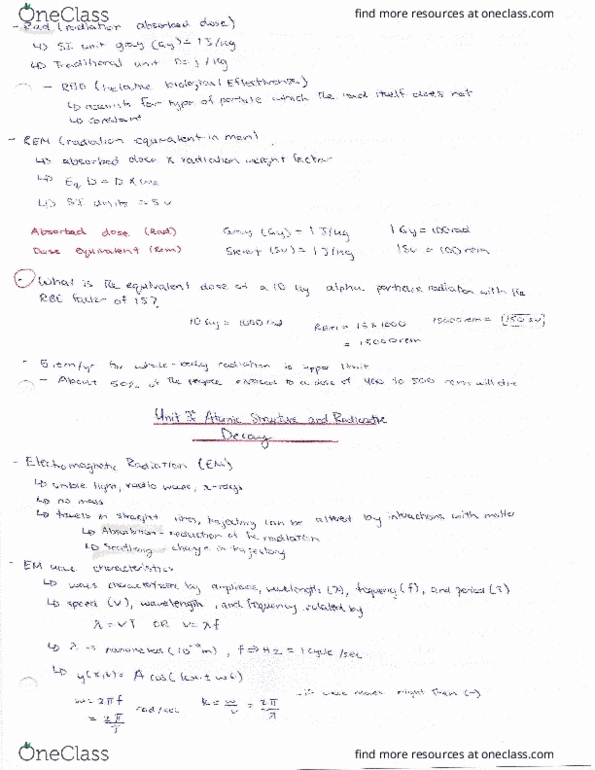 OneClass
find more resources at oneclass.com
- Rad (radiation absorbed dose)
↳ S.I unit gray (Gy) = 1 J/kg
↳ Traditional unit D = J/kg
- RBE (relative biological Effectiveness)
↳ accounts for type of particle which the rad itself does not
↳ constant
- REM (radiation equivalent in man)
↳ absorbed dose x radiation weight factor
↳ Eq D = D x
↳ S.I units = Sv
Absorbed dose (Rad) Gray (Gy) - 1 J/kg 1 Gy = 100 rad
Dose equivalent (Rem) Sievert (Sv) = 1 J/kg 1 Sv = 100 rem
- What is the equivalent dose of a 10 Gy alpha particle radiation with
RBE factor of 15?
10 Gy = 1000 rad Rem = 15 x 1000 15000 rem = 150 Sv
= 15000 rem
- 5 rem/yr for whole-body radiation is upper limit
- About 50% of the people exposed to a dose of 400 to 500 rems will die
Unit Atomic Structure and Radioactive
Decay
- Electromagnetic Radiation (EM)
↳ visible light, radio waves, x-rays
↳ no mass
↳ travels in straight lines, trajectory can be altered by interactions with matter
↳ Absorbtion - reduction of the radiation
↳ Scattering - change in trajectory
- EM wave characteristics
↳ waves characterized by amplitude, wavelength (λ), frequency (f), and period (T)
↳ speed (v), wavelength, and frequency related by
λ = vT OR v = λf
↳ λ → nanometres (10⁻⁹m), f ⇒ Hz = 1 cycle/sec
↳ y(x,t) = A cos(kx ± wt)
w = 2πf rad/sec k = w/v = 2π/λ - if wave moves right then (-)
= 2π/T
OneClass
find more resources at oneclass.com